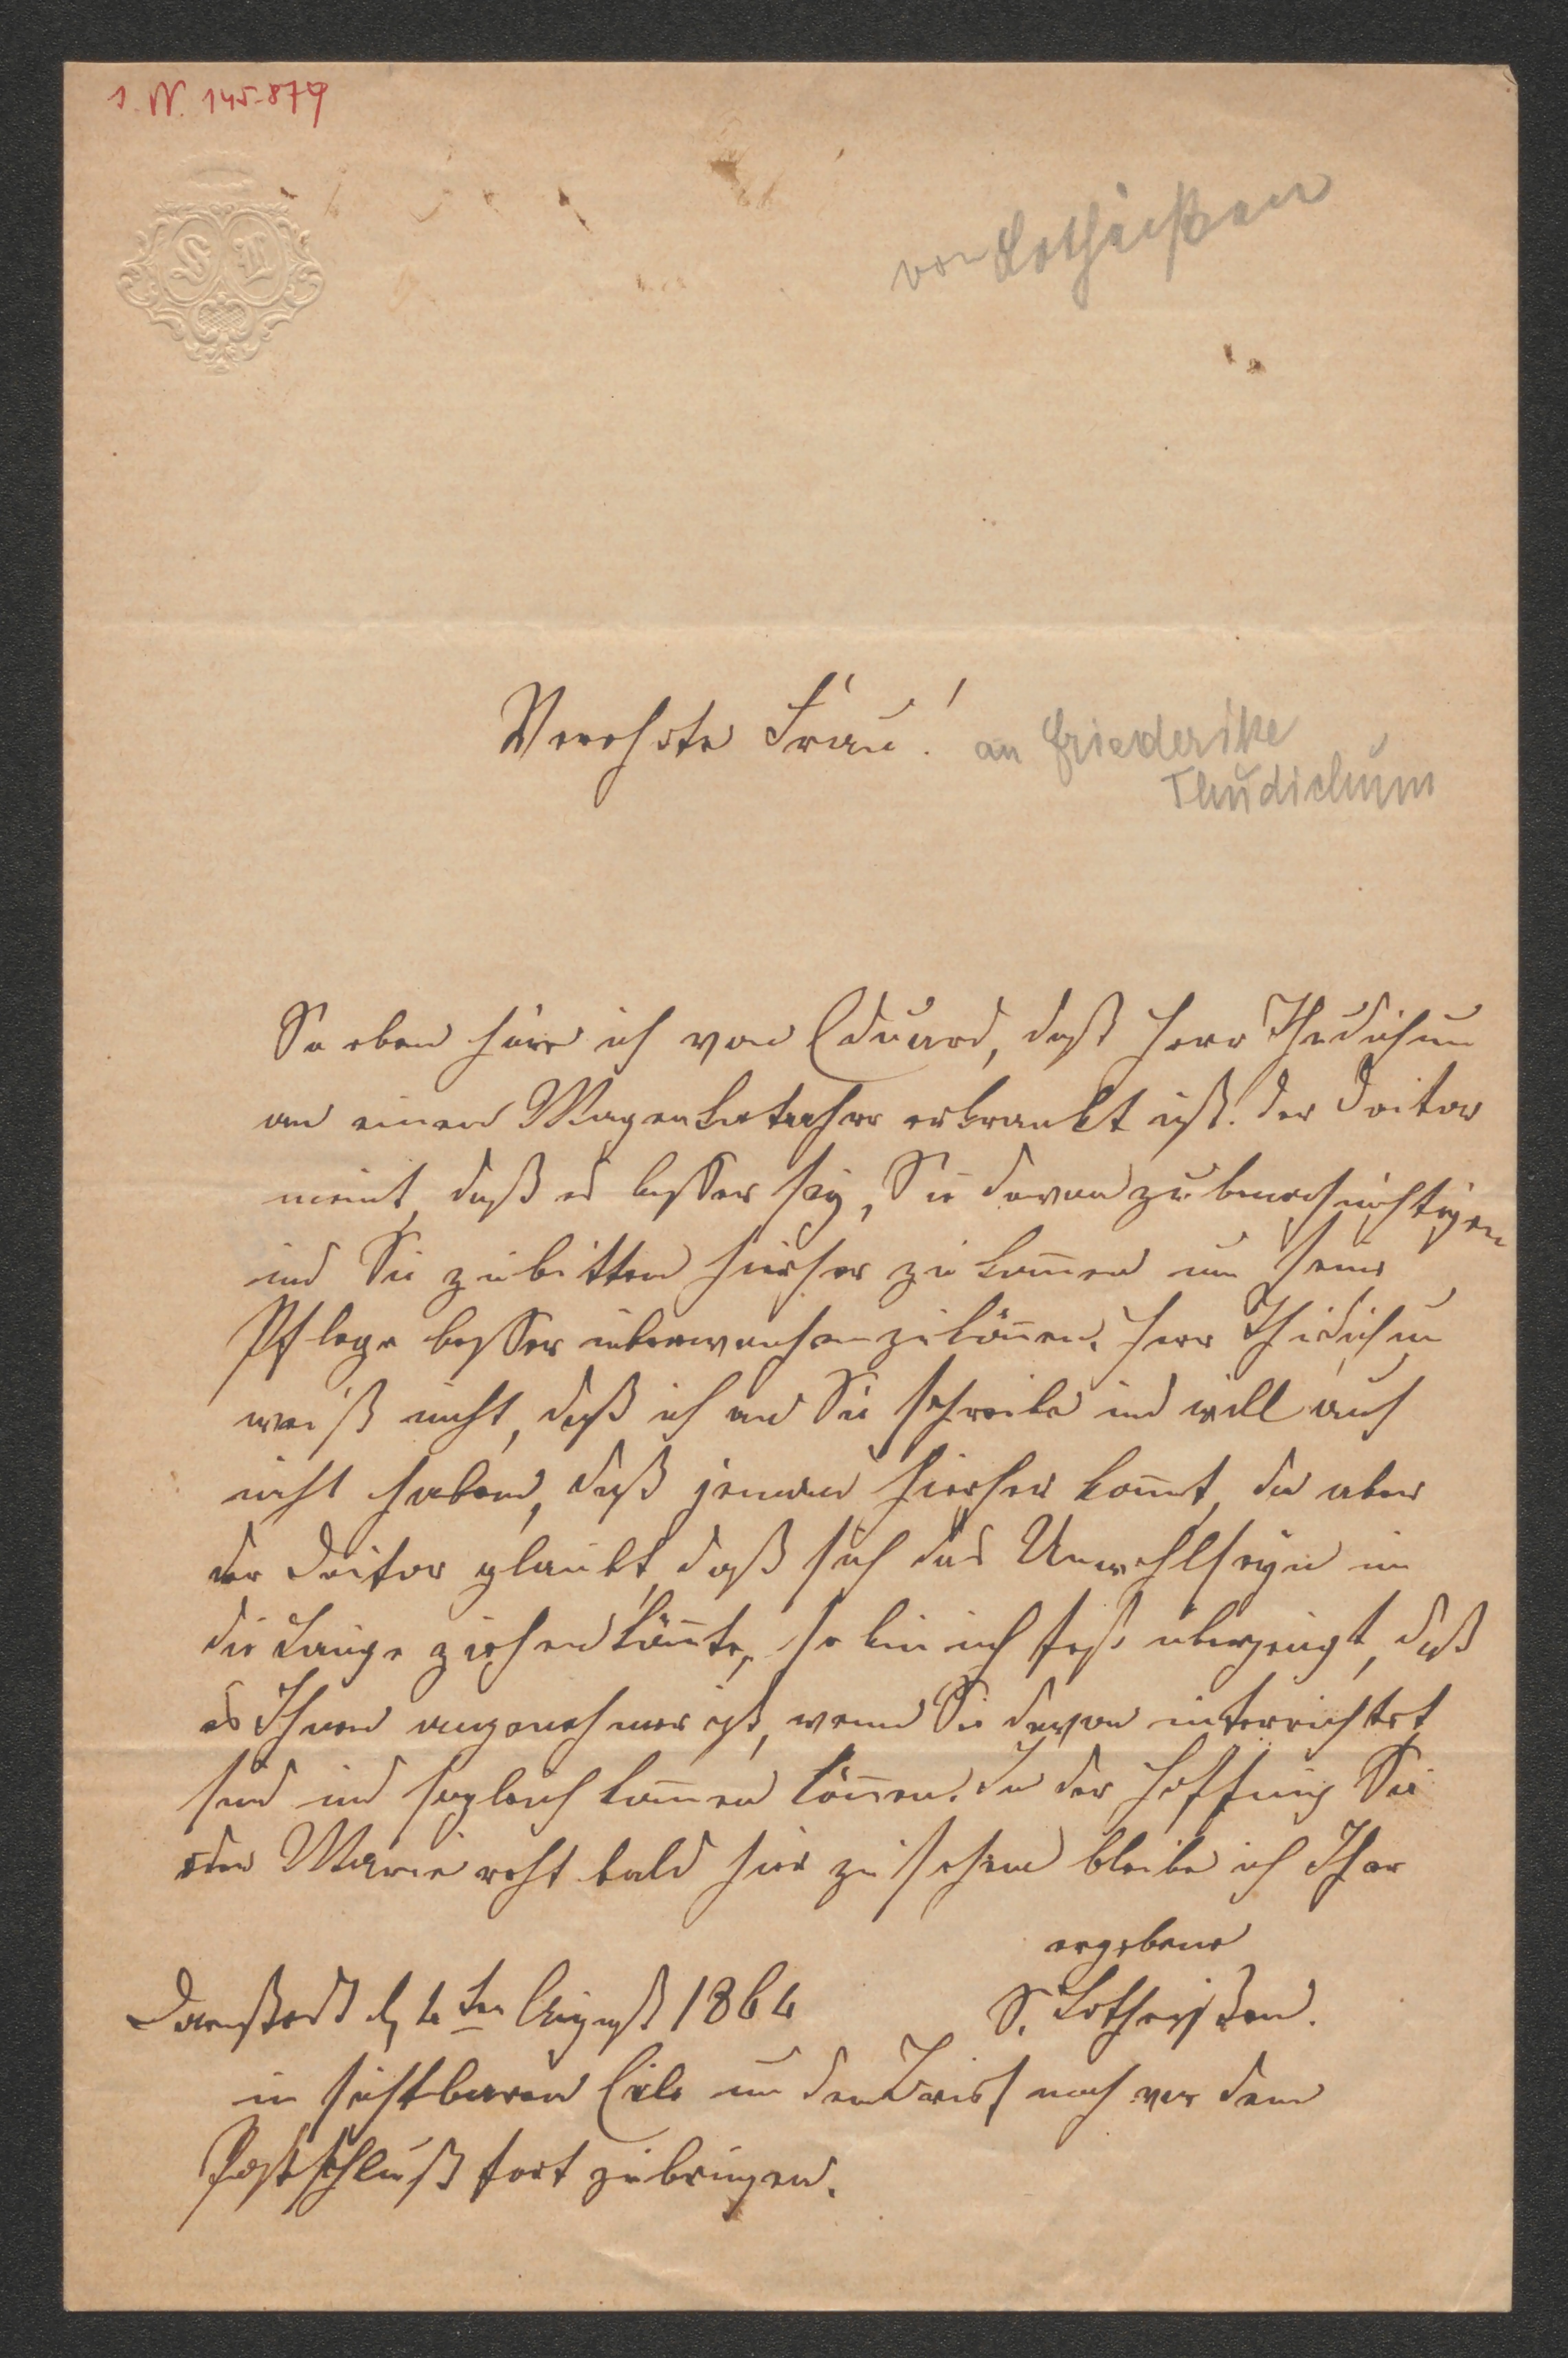 I. N. 145.879
S L
von Lotheißen
Verehrte Frau!
an Friederike
Thudichum
So eben höre ich von Eduard, daß Herr Thudichum
an einem Magenkatarhr erkrankt ist. Der Doctor
meint, daß es besser sey, Sie davon zu benachrichtigen
und Sie zu bitten hierher zu kom̅en um seine
Pflege besser überwachen zu kön̅en. Herr Thudichum
weiß nicht, daß ich an Sie schreibe und will auch
nicht haben, daß jemand hierher kom̅t, da aber
der Doctor glaubt, daß sich das Unwohlseyn in
die Länge ziehen kön̅te, so bin ich fest überzeugt, daß
es Ihnen angenehmer ist, wenn Sie davon unterrichtet
sind und sogleich kom̅en kön̅en. In der Hoffnung Sie
oder Marie recht bald hier zu sehen bleibe ich Ihre
ergebene
Darmstadt d. 4ten August 1864
S. Lotheißen.
in sichtbarer Eile um den Brief noch vor dem
Postschluß fort zu bringen.